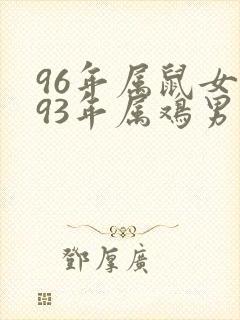 96年属鼠女
93年属鸡男
鄧厚廣